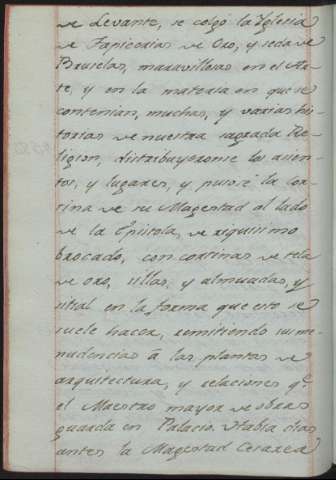 de Levante, se colgó la Yglesia
de Tapicerias de Oro, y seda de
Bruselas, maravillosas en el Ar-
te, y en la materia en que se
contenian, muchas, y varias his-
torias de nuestra sagrada Re-
ligion, distribuyeronse los asien-
tos, y lugares, y pusose la cor-
tina de su Magestad al lado
de la Epistola, de riquissimo
brocado, con cortinas de tela
de oro, sillas, y almuadas, y
sitial en la forma que esto se
suele hacer, remitiendo sus me-
nudencias à las plantas de
arquitectura, y relaciones q.e
el Maestro mayor de obras
guarda en Palacio.
antes la Magestad Cesarea